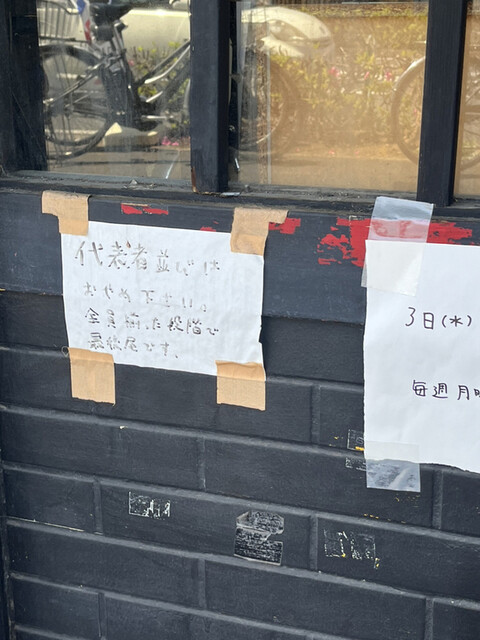 代表者並びは
おやめ下さい。
全員揃った段階で
最後尾です、
3日(水)
毎週月